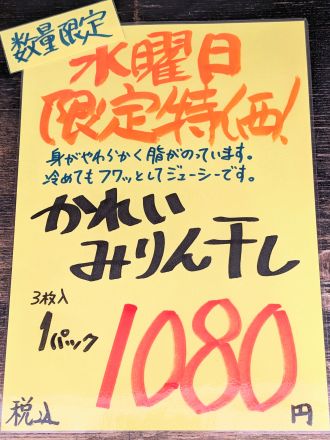 数量限定
水曜日
限定特価!
身がやわらかく脂がのっています。
冷めてもフワッとしてジューシーです。
かれい
みりん干し
3枚入
1パック
1080
税込
円